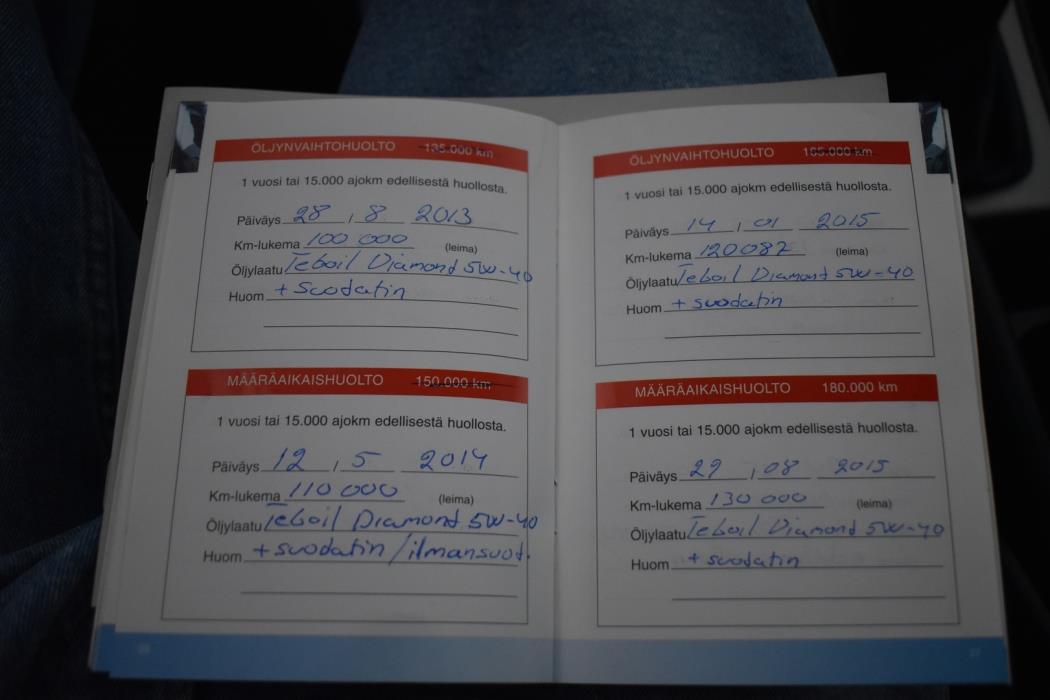 ÖLJYNVAIHTOHUOLTO 135.000 km
1 vuosi tai 15.000 ajokm edellisestä huollosta.
Päiväys 28 , 8 2013
Km-lukema 100 000 (leima)
Öljylaatu Teboil Diamond 5W-40
Huom + suodatin
MÄÄRÄAIKAISHUOLTO 150.000 km
1 vuosi tai 15.000 ajokm edellisestä huollosta.
Päiväys 12 / 5 2014
Km-lukema 110 000 (leima)
Öljylaatu Teboil Diamond 5W-40
Huom + suodatin / ilmansuod.
ÖLJYNVAIHTOHUOLTO 165.000 km
1 vuosi tai 15.000 ajokm edellisestä huollosta.
Päiväys 14 , 01 2015
Km-lukema 120082 (leima)
Öljylaatu Teboil Diamond 5W-40
Huom + suodatin
MÄÄRÄAIKAISHUOLTO 180.000 km
1 vuosi tai 15.000 ajokm edellisestä huollosta.
Päiväys 29 , 08 2015
Km-lukema 130 000 (leima)
Öljylaatu Teboil Diamond 5W-40
Huom + suodatin